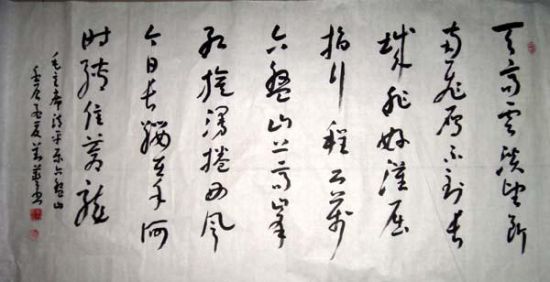 天高雲淡望断
南飛雁不到长
城非好漢屈
指行程二萬
六盤山上高峰
红旗漫捲西风
今日长缨在手何
时缚住蒼龍
毛主席词清平乐六盘山
孟夏 书